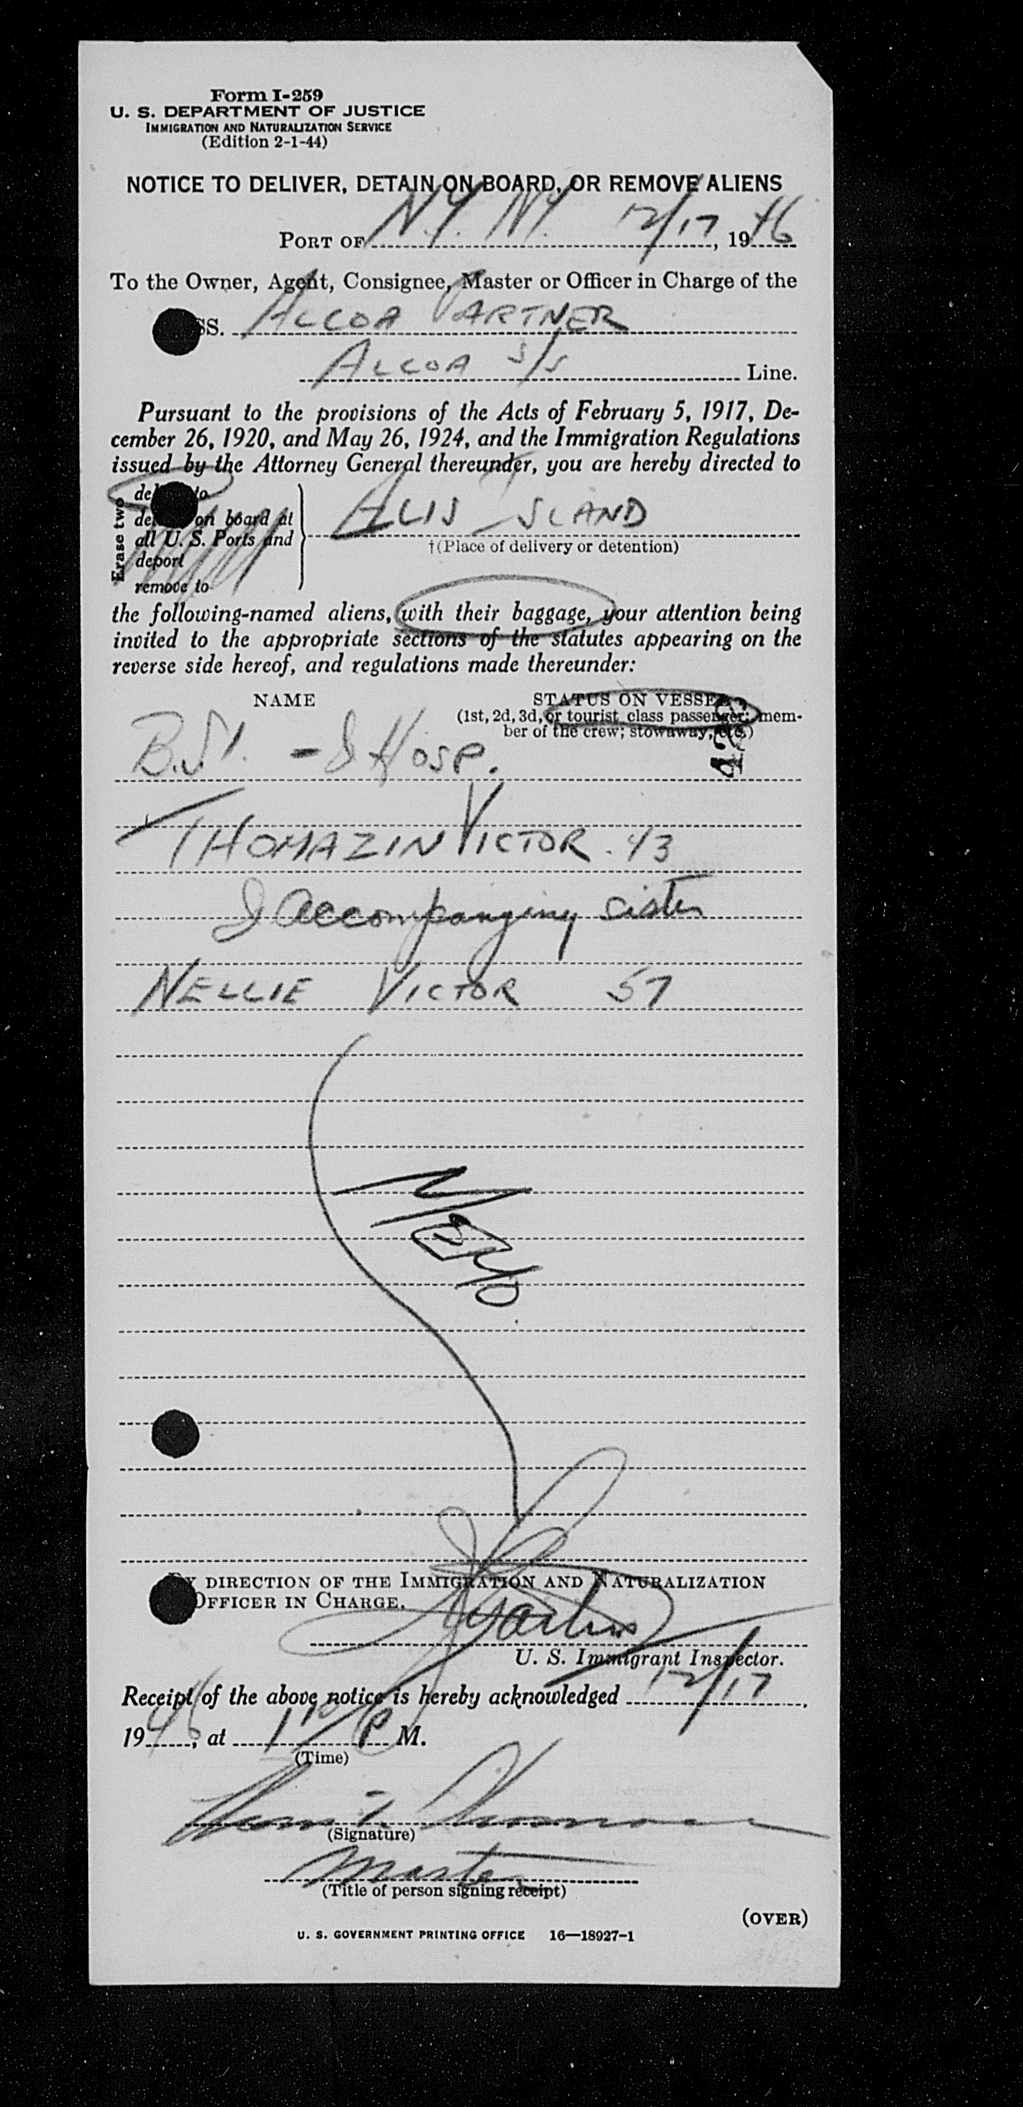 Form I-259
U. S. DEPARTMENT OF JUSTICE
IMMIGRATION AND NATURALIZATION SERVICE
(Edition 2-1-44)
NOTICE TO DELIVER, DETAIN ON BOARD, OR REMOVE ALIENS
PORT OF N.Y. N.Y. 12/17, 1946
To the Owner, Agent, Consignee, Master or Officer in Charge of the
SS. ALCOA PARTNER
ALCOA S/S Line.
Pursuant to the provisions of the Acts of February 5, 1917, De-
cember 26, 1920, and May 26, 1924, and the Immigration Regulations
issued by the Attorney General thereunder, you are hereby directed to
Erase two
to
on board at
all U. S. Ports and
deport
remove to
ALIS ISLAND
†(Place of delivery or detention)
the following-named aliens, with their baggage, your attention being
invited to the appropriate sections of the statutes appearing on the
reverse side hereof, and regulations made thereunder:
NAME STATUS ON VESSEL
(1st, 2d, 3d, or tourist class passenger; mem-
ber of the crew; stowaway, etc.)
B.S.I. - & HOSP.
THOMAZIN VICTOR. 43
& accompanying sister
NELLIE VICTOR 57
BY DIRECTION OF THE IMMIGRATION AND NATURALIZATION
OFFICER IN CHARGE.
U. S. Immigrant Inspector.
Receipt of the above notice is hereby acknowledged 12/17,
1946, at 1 10 P M.
(Time)
(Signature)
Master
(Title of person signing receipt)
(OVER)
U. S. GOVERNMENT PRINTING OFFICE 16—18927-1